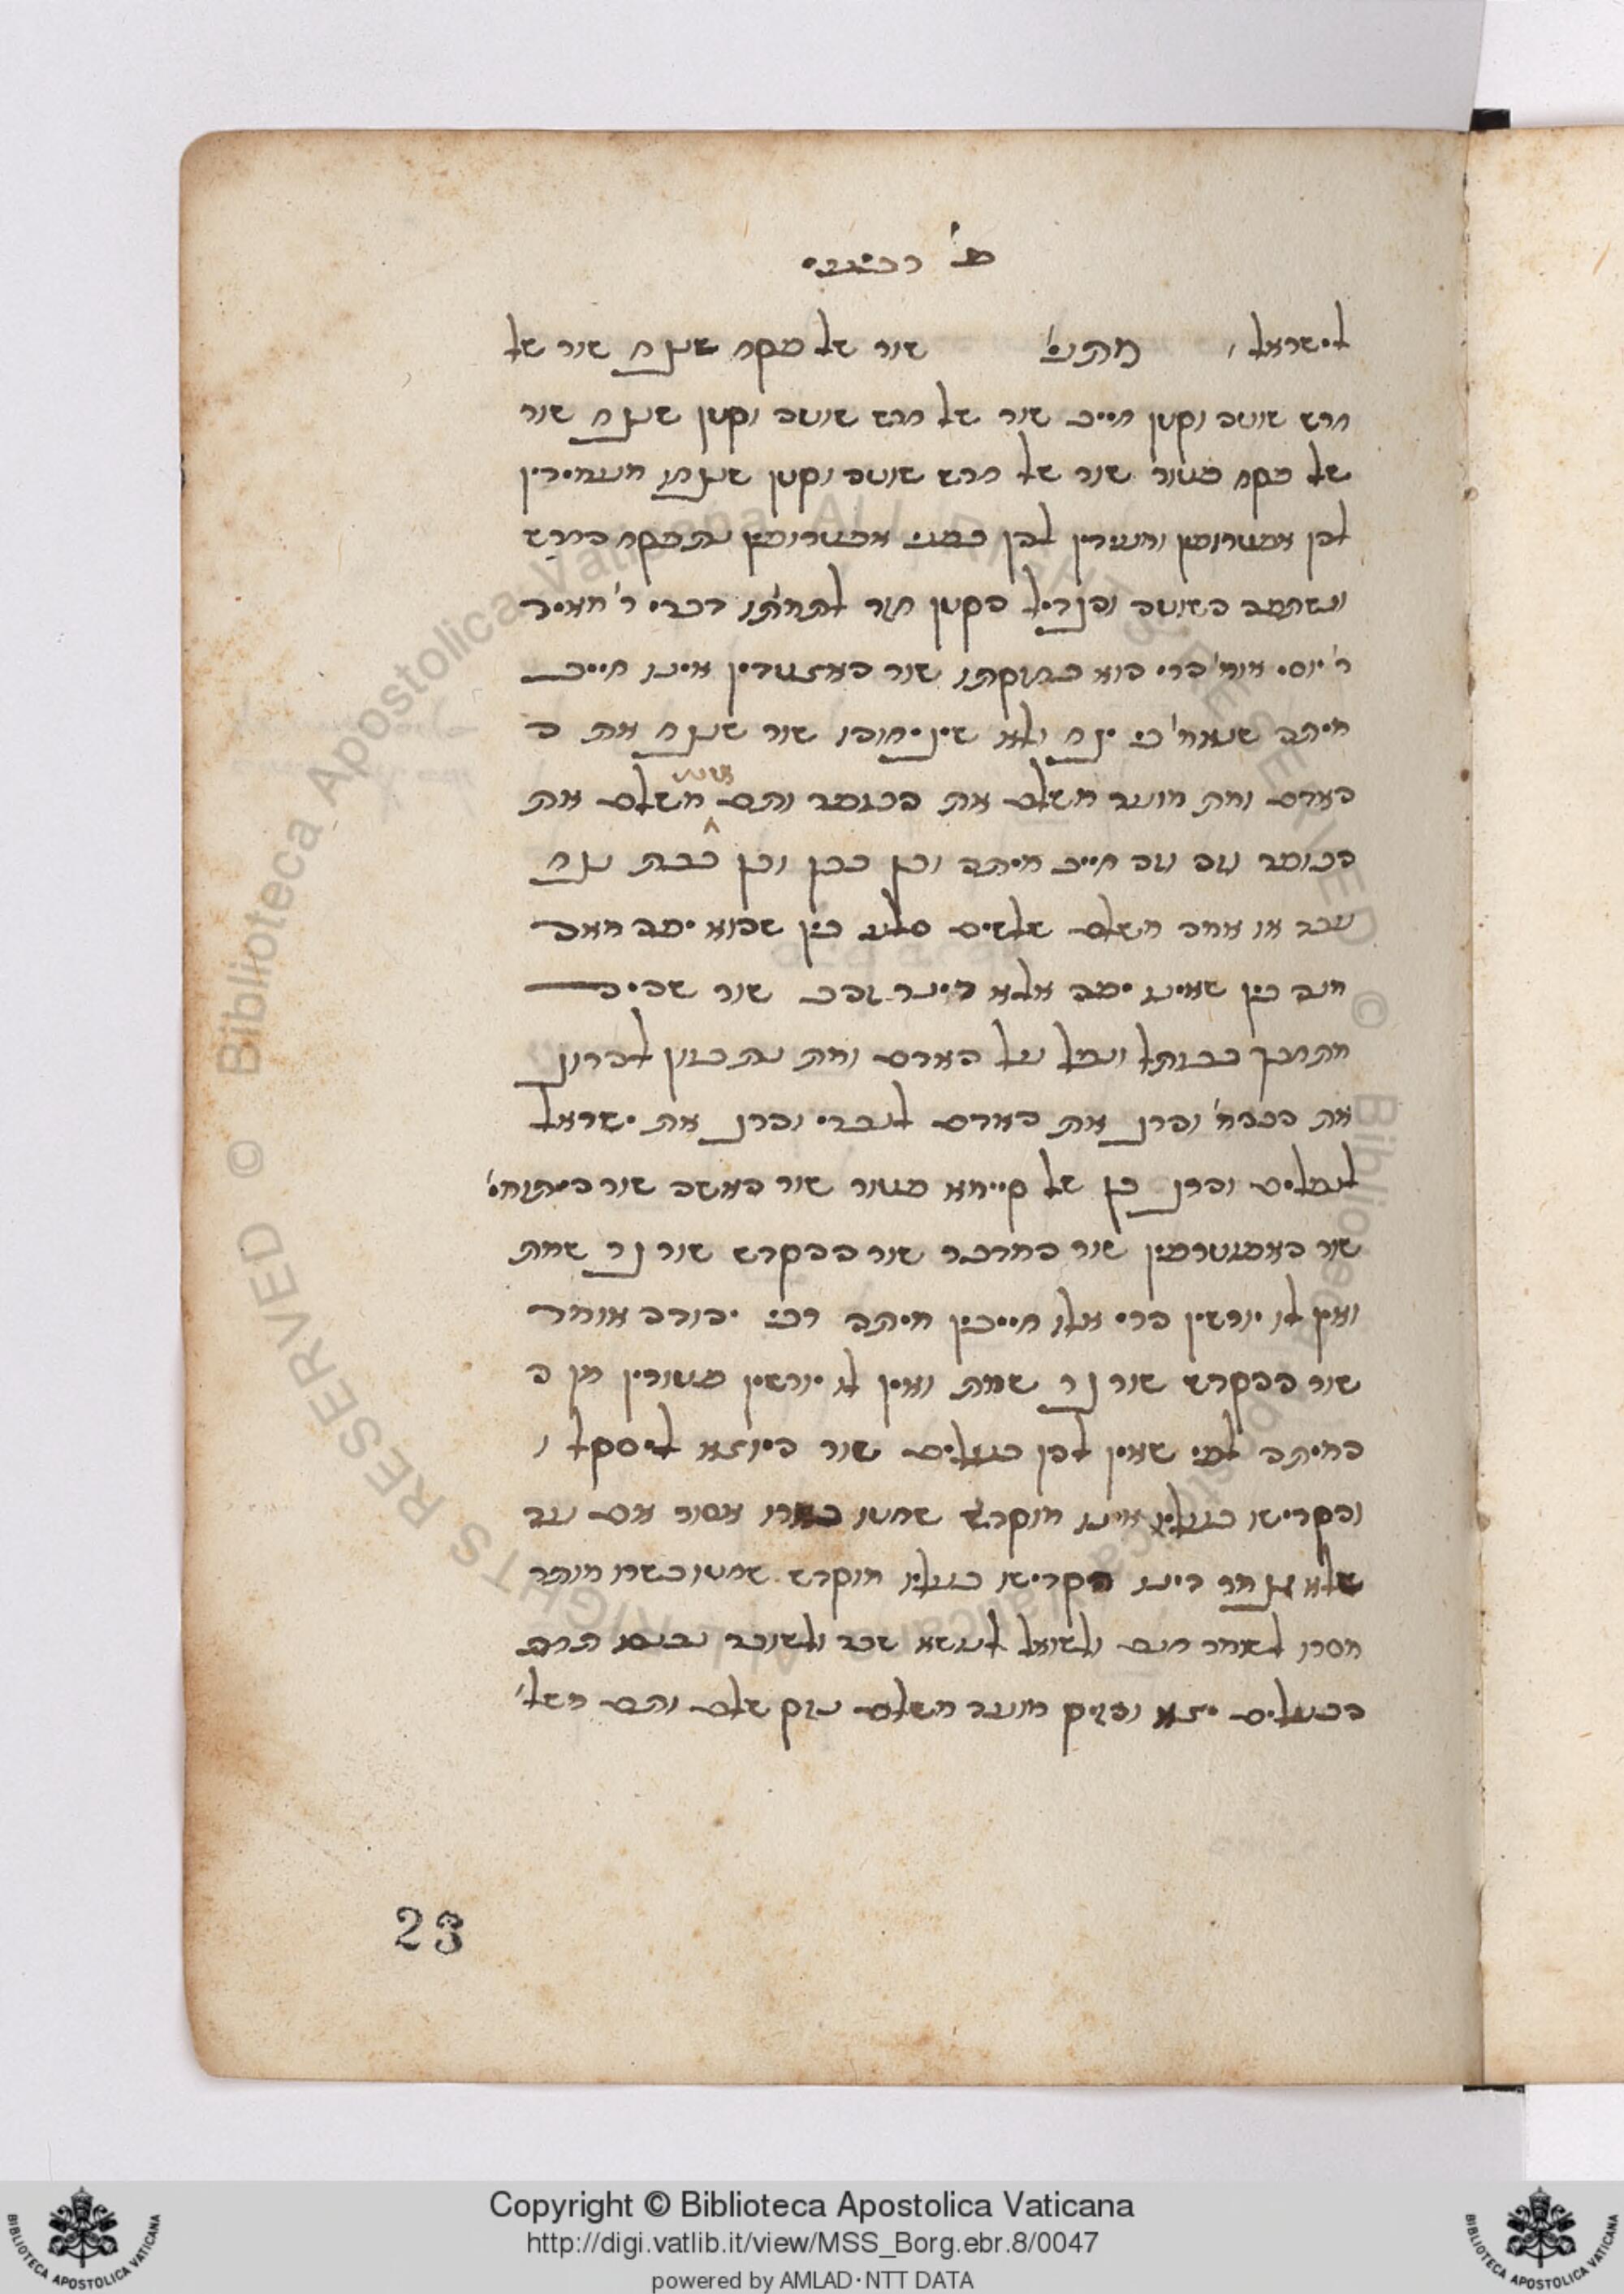 פ' רביעי
לישראל, מתני' שור של פקח שנגח שור של
חרש שוטה וקטן חייב שור של חרש שוטה וקטן שנגח שור
של פקח פטור שור של חרש שוטה וקטן שנגחו מעמידין
להן אפטרופין ומעידין להן בפני אפטרופין נתפקח החרש
ונשתפה השוטה והגדיל הקטן חזר לתמתו דברי ר' מאיר
ר' יוסי אומ' הרי הוא בחזקתו שור האצטדין אינו חייב
מיתה שנאמ' כי יגח ולא שיגיחוהו שור שנגח את ה
האדם ומת מועד משלם את הכופר ותם משלם את
הכופר וזה וזה חייב מיתה וכן בבן וכן בבת נגח
עבד או אמה משלם שלשים סלע בין שהוא יפה מאה
מנה בין שאינו יפה אלא דינר זהב שור שהיה
מתחכך בכותל ונפל על האדם ומת נתכוון להרוג
את הבהמ' והרג את האדם לנכרי והרג את ישראל
לנפלים והרג בן של קיימא פטור שור האשה שור היתומי'
שור האפוטרופין שור המדבר שור ההקדש שור גר שמת
ואין לו יורשין הרי אלו חייבין מיתה רבי יהודה אומר
שור ההקדש שור גר שמת ואין לו יורשין פטורין מן ה
המיתה לפי שאין להן בעלים שור היוצא ליסקל ו
והקדישו בעליו אינו מוקדש שחטו בשרו אסור אם עד
שלא נגמר דינו הקדישו בעליו מוקדש שחטו בשרו מותר
מסרו לשומר חנם ולשואל לנושא שכר ולשוכר נכנסו תחת
הבעלים יצא והזיק מועד משלם נזק שלם ותם משל'
23
Copyright © Biblioteca Apostolica Vaticana
http://digi.vatlib.it/view/MSS_Borg.ebr.8/0047
powered by AMLAD·NTT DATA